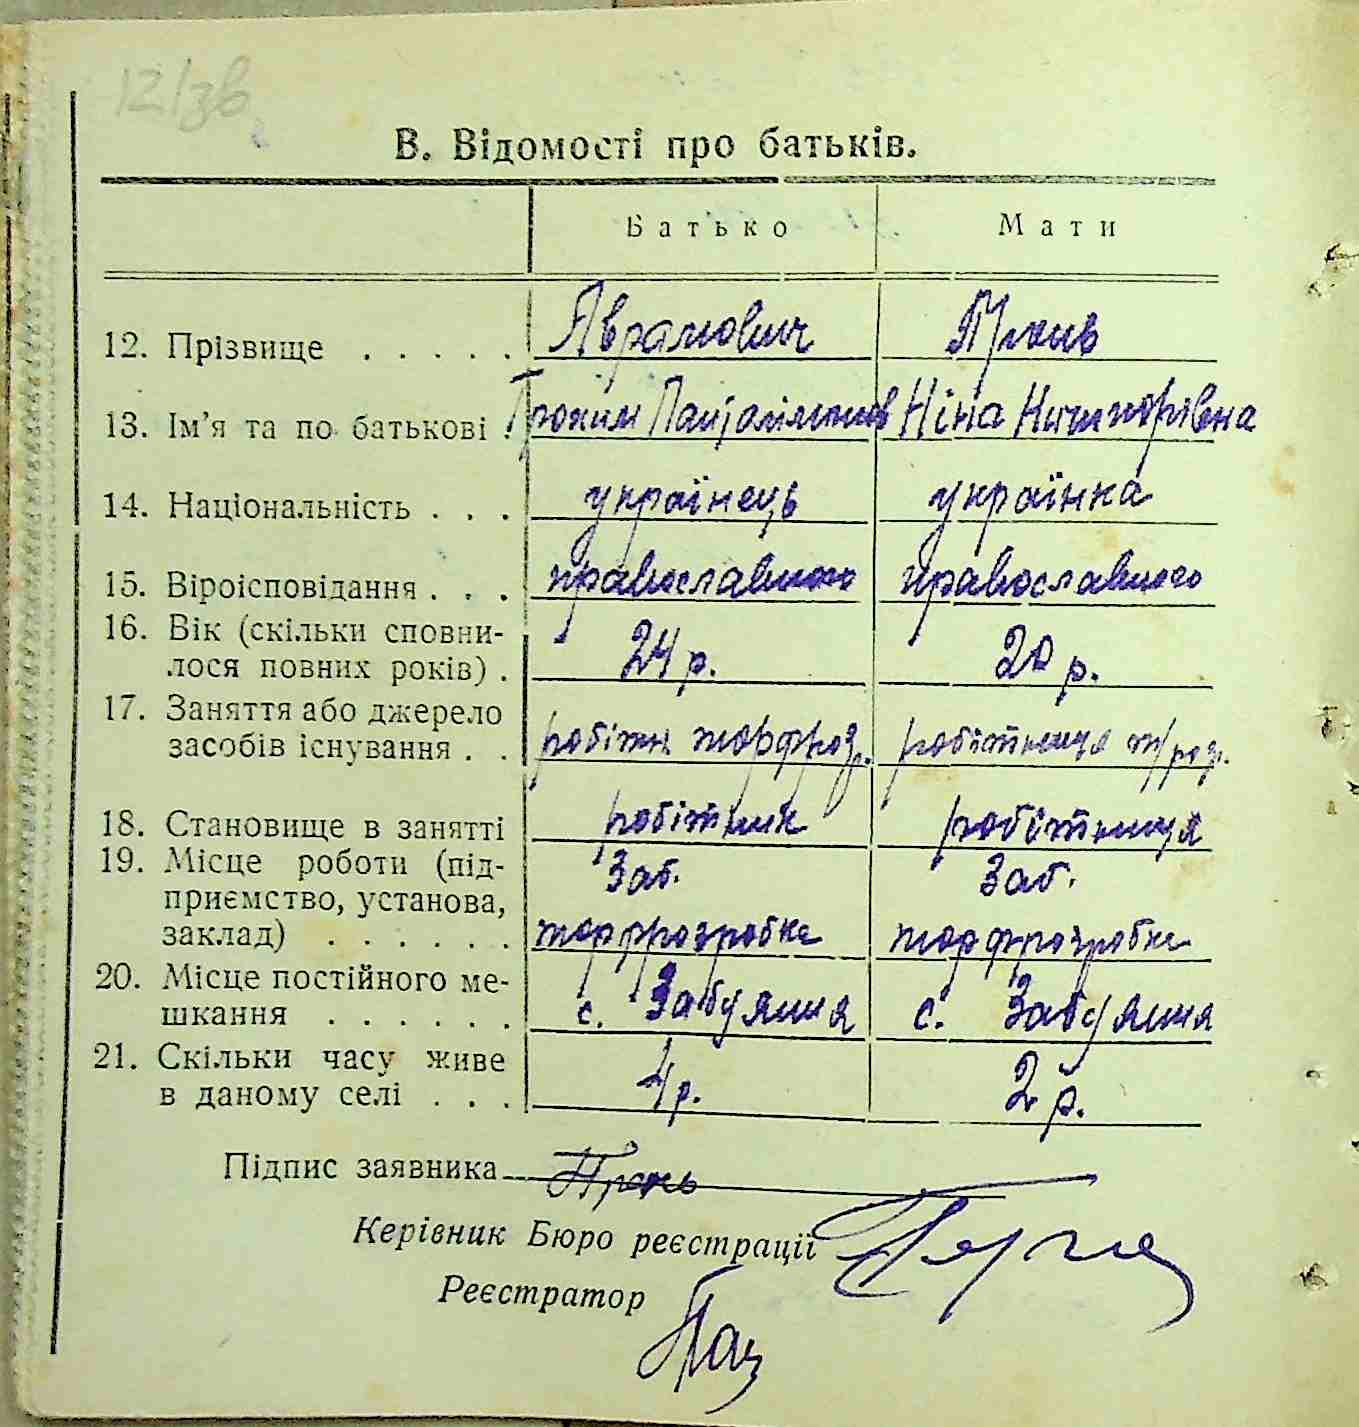 12/зв
В. Відомості про батьків.
Батько Мати
12. Прізвище . . . . . Аврамович Пронь
13. Ім'я та по батькові . Трохим Ніна Ничипорівна
14. Національність . . . українець українка
15. Віроісповідання . . . православного православного
16. Вік (скільки сповни-
лося повних років) . 24 р. 20 р.
17. Заняття або джерело
засобів існування . . робітн торфроз. робітниця т/роз.
18. Становище в занятті робітник робітниця
19. Місце роботи (під- Заб. Заб.
приємство, установа,
заклад) . . . . . . торфрозробка торфрозробка
20. Місце постійного ме-
шкання . . . . . . с. Забуяння с. Забуяння
21. Скільки часу живе
в даному селі . . . 4 р. 2 р.
Підпис заявника Пронь
Керівник Бюро реєстрації
Реєстратор